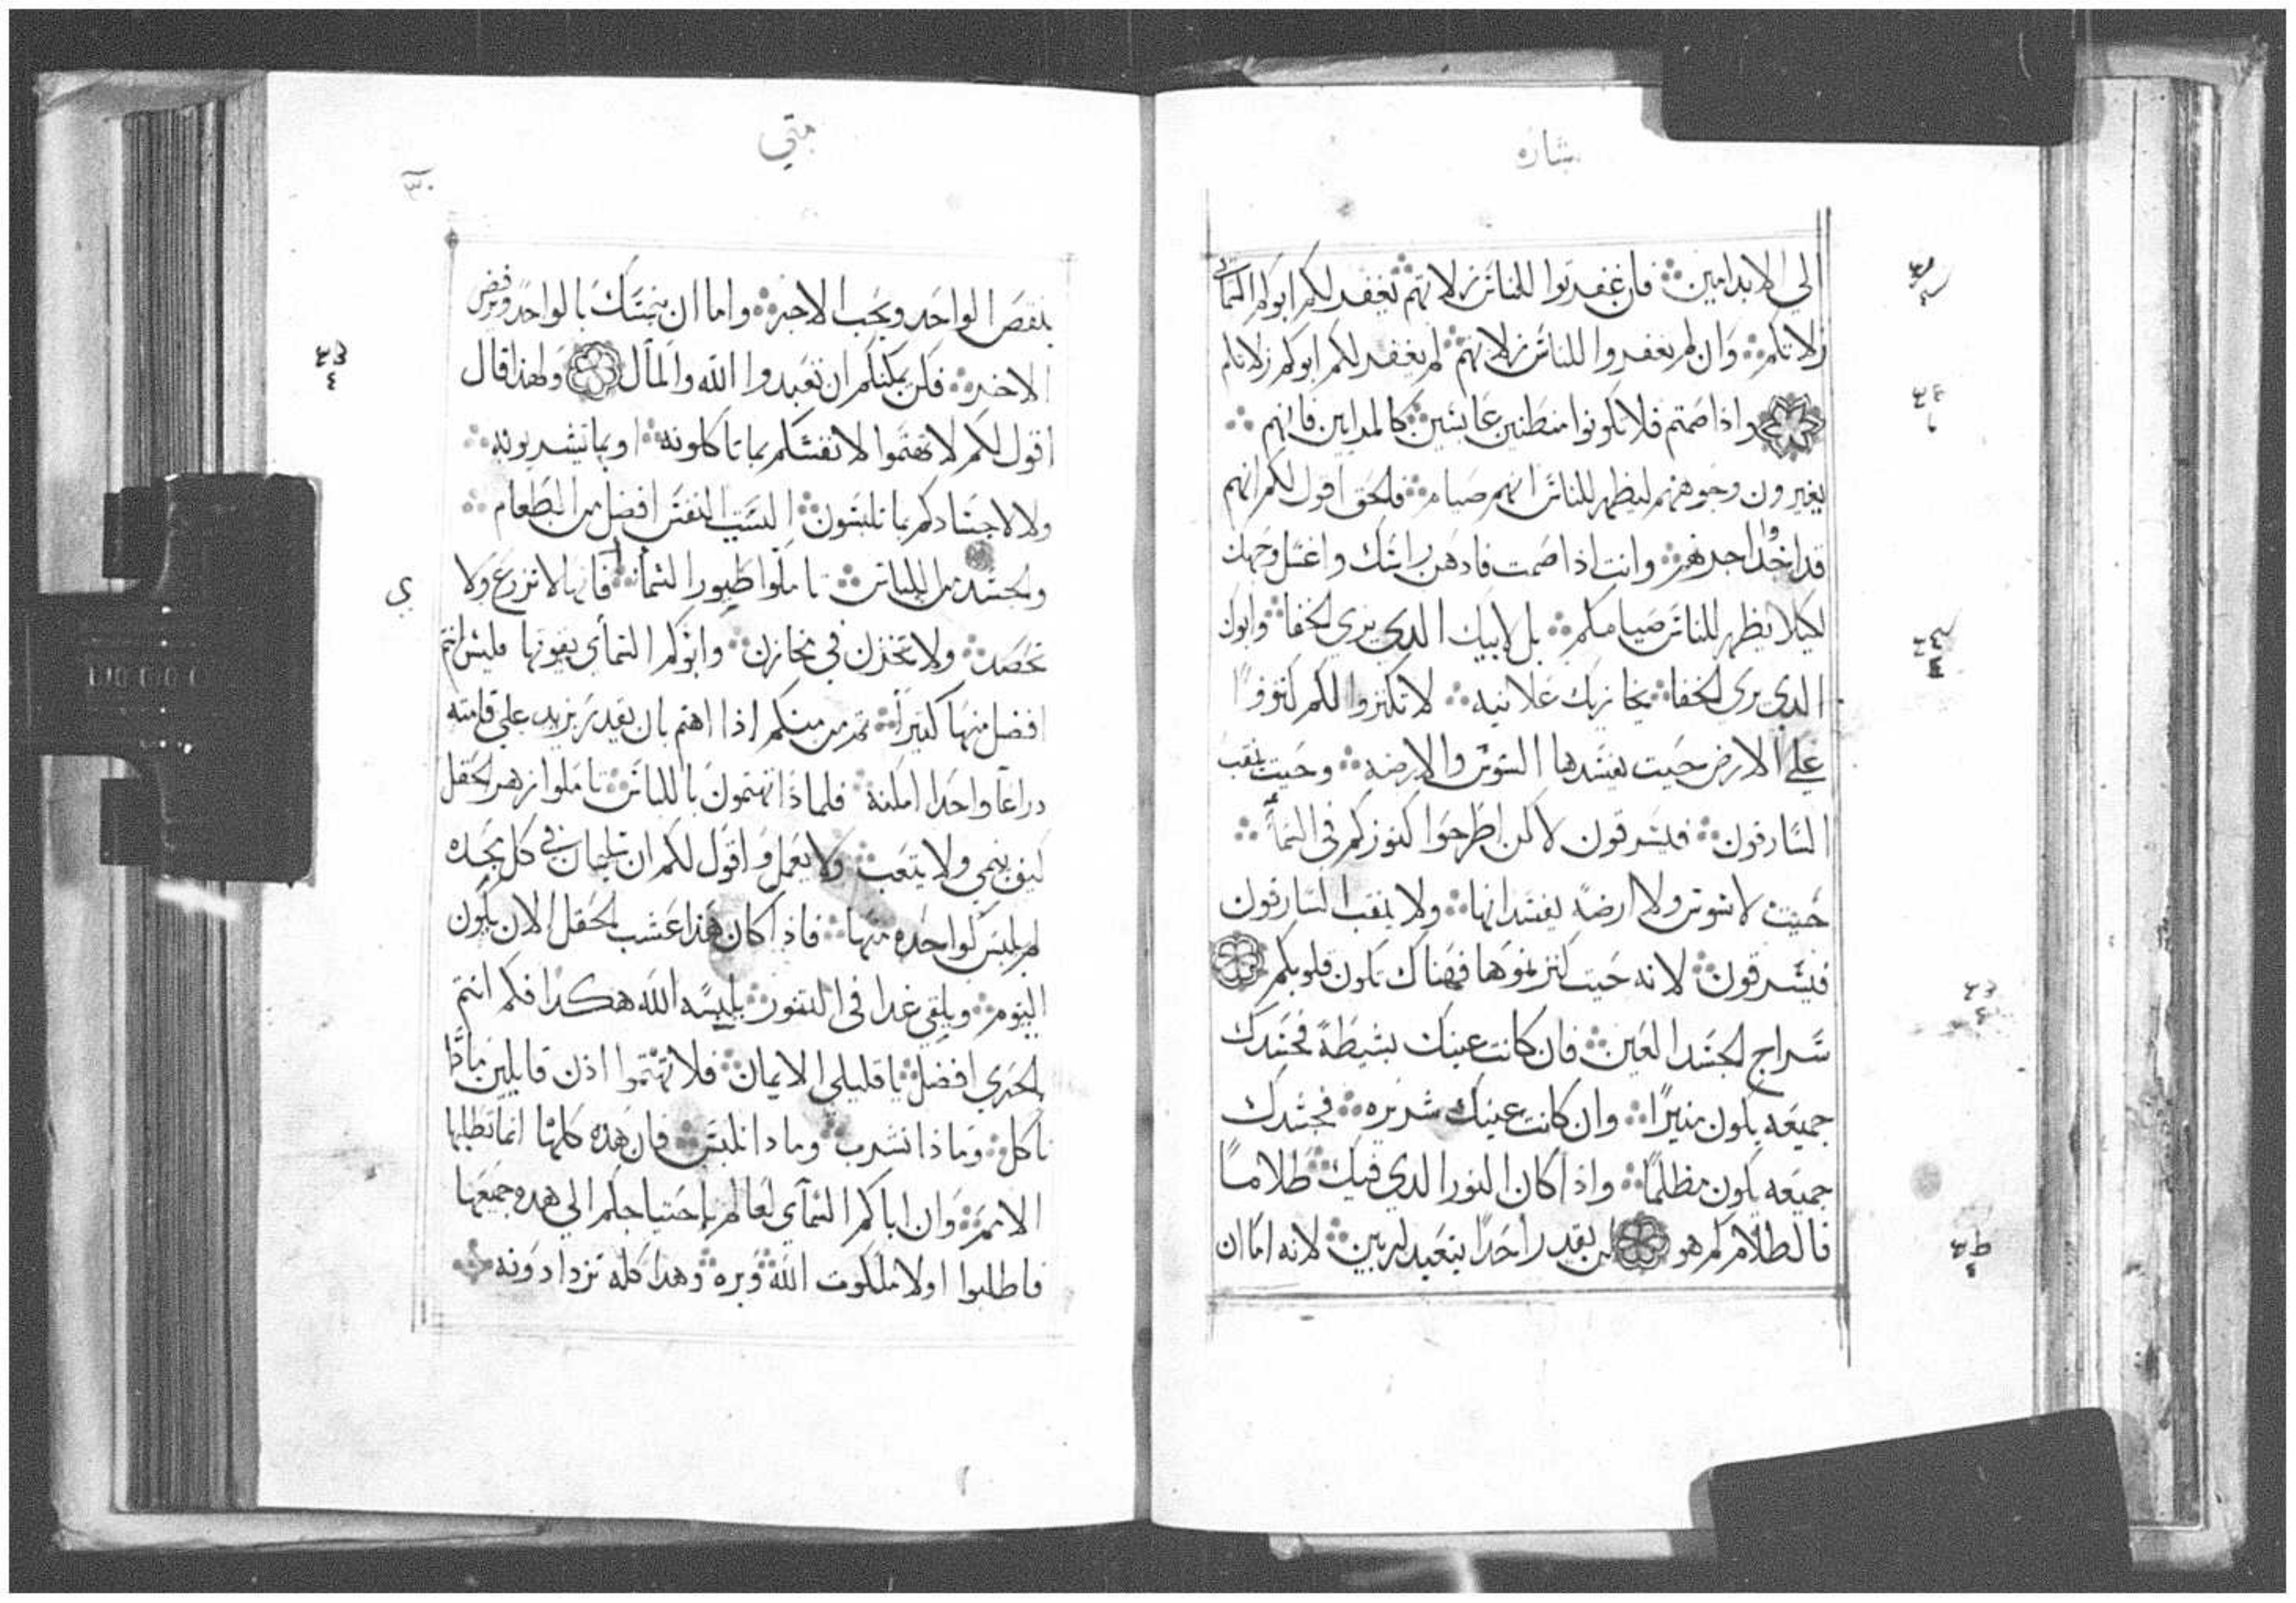 بشاره
الي الابد امين فان غفرتوا للناس زلاتهم يغفر لكم ابوكم السمائي
زلاتكم وان لم تغفروا للناس زلاتهم لم يغفر لكم ابوكم زلاتكم
واذا صمتم فلا تكونوا منطنين عابسين كالمرايين فانهم
يغيرون وجوههم ليظهر للناس انهم صيام فالحق اقول لكم انهم
قد اخذوا اجرهم وانت اذا صمت فادهن راسك واغسل وجهك
لكيلا يظهر للناس صيامكم بل لابيك الدي يري الخفا وابوك
الدي يري الخفا يجازيك علانيه لا تكنزوا لكم كنوزًا
علي الارض حيت يفسدها السوس والارضه وحيت ينقب
السارقون فيسرقون لاكن اطرحوا كنوزكم في السماء
حيت لا سوس ولا ارضه يفسدانها ولا ينقب السارقون
فيسرقون لانه حيت كنزتموها فهناك تكون قلوبكم
سراج الجسد العين فان كانت عينك بسيطة فجسدك
جميعه يكون منيرًا وان كانت عينك شريره فجسدك
جميعه يكون مظلمًا واذا كان النور الدي فيك ظلامًا
فالظلام كم هو لن يقدر احدًا يتعبد لربين لانه اما ان
متي
٣٠
ينقص الواحد ويحب الاخر واما ان يتمسك بالواحد ويرفض
الاخر فلن يمكنكم ان تعبدوا الله والمال ولهذا قال
اقول لكم لا تهتموا لانفسكم بما تاكلونه او بما تشربونه
ولا لاجسادكم بما تلبسون اليست النفس افضل من الطعام
والجسد من اللباس تاملوا طيور السماء فانها لا تزرع ولا
تحصد ولا تخزن في مخازن وابوكم السمأي يقوتها فليس انتم
افضل منها كثيرًا فمن منكم اذا اهتم بان يقدر يزيد علي قامته
دراعًا واحدا امكنه فلماذا تهتمون باللباس تاملوا زهر الحقل
كيف ينمي ولا يتعب ولا يعمل واقول لكم ان سليمان في كل مجده
لم يلبس كواحده منها فاذا كان هذا عشب الحقل الان يكون
اليوم ويلقي غدا في التنور يلبسه الله هكذا فكم انتم
الحري افضل يا قليلي الايمان فلا تهتموا اذن قايلين ماذا
ناكل وماذا نشرب وماذا نلبس فان هذه كلها انما تطلبها
الامم وان اباكم السمأي لعالم باحتياجكم الي هده جميعها
فاطلبوا اولا ملكوت الله وبره وهدا كله تزدادونه